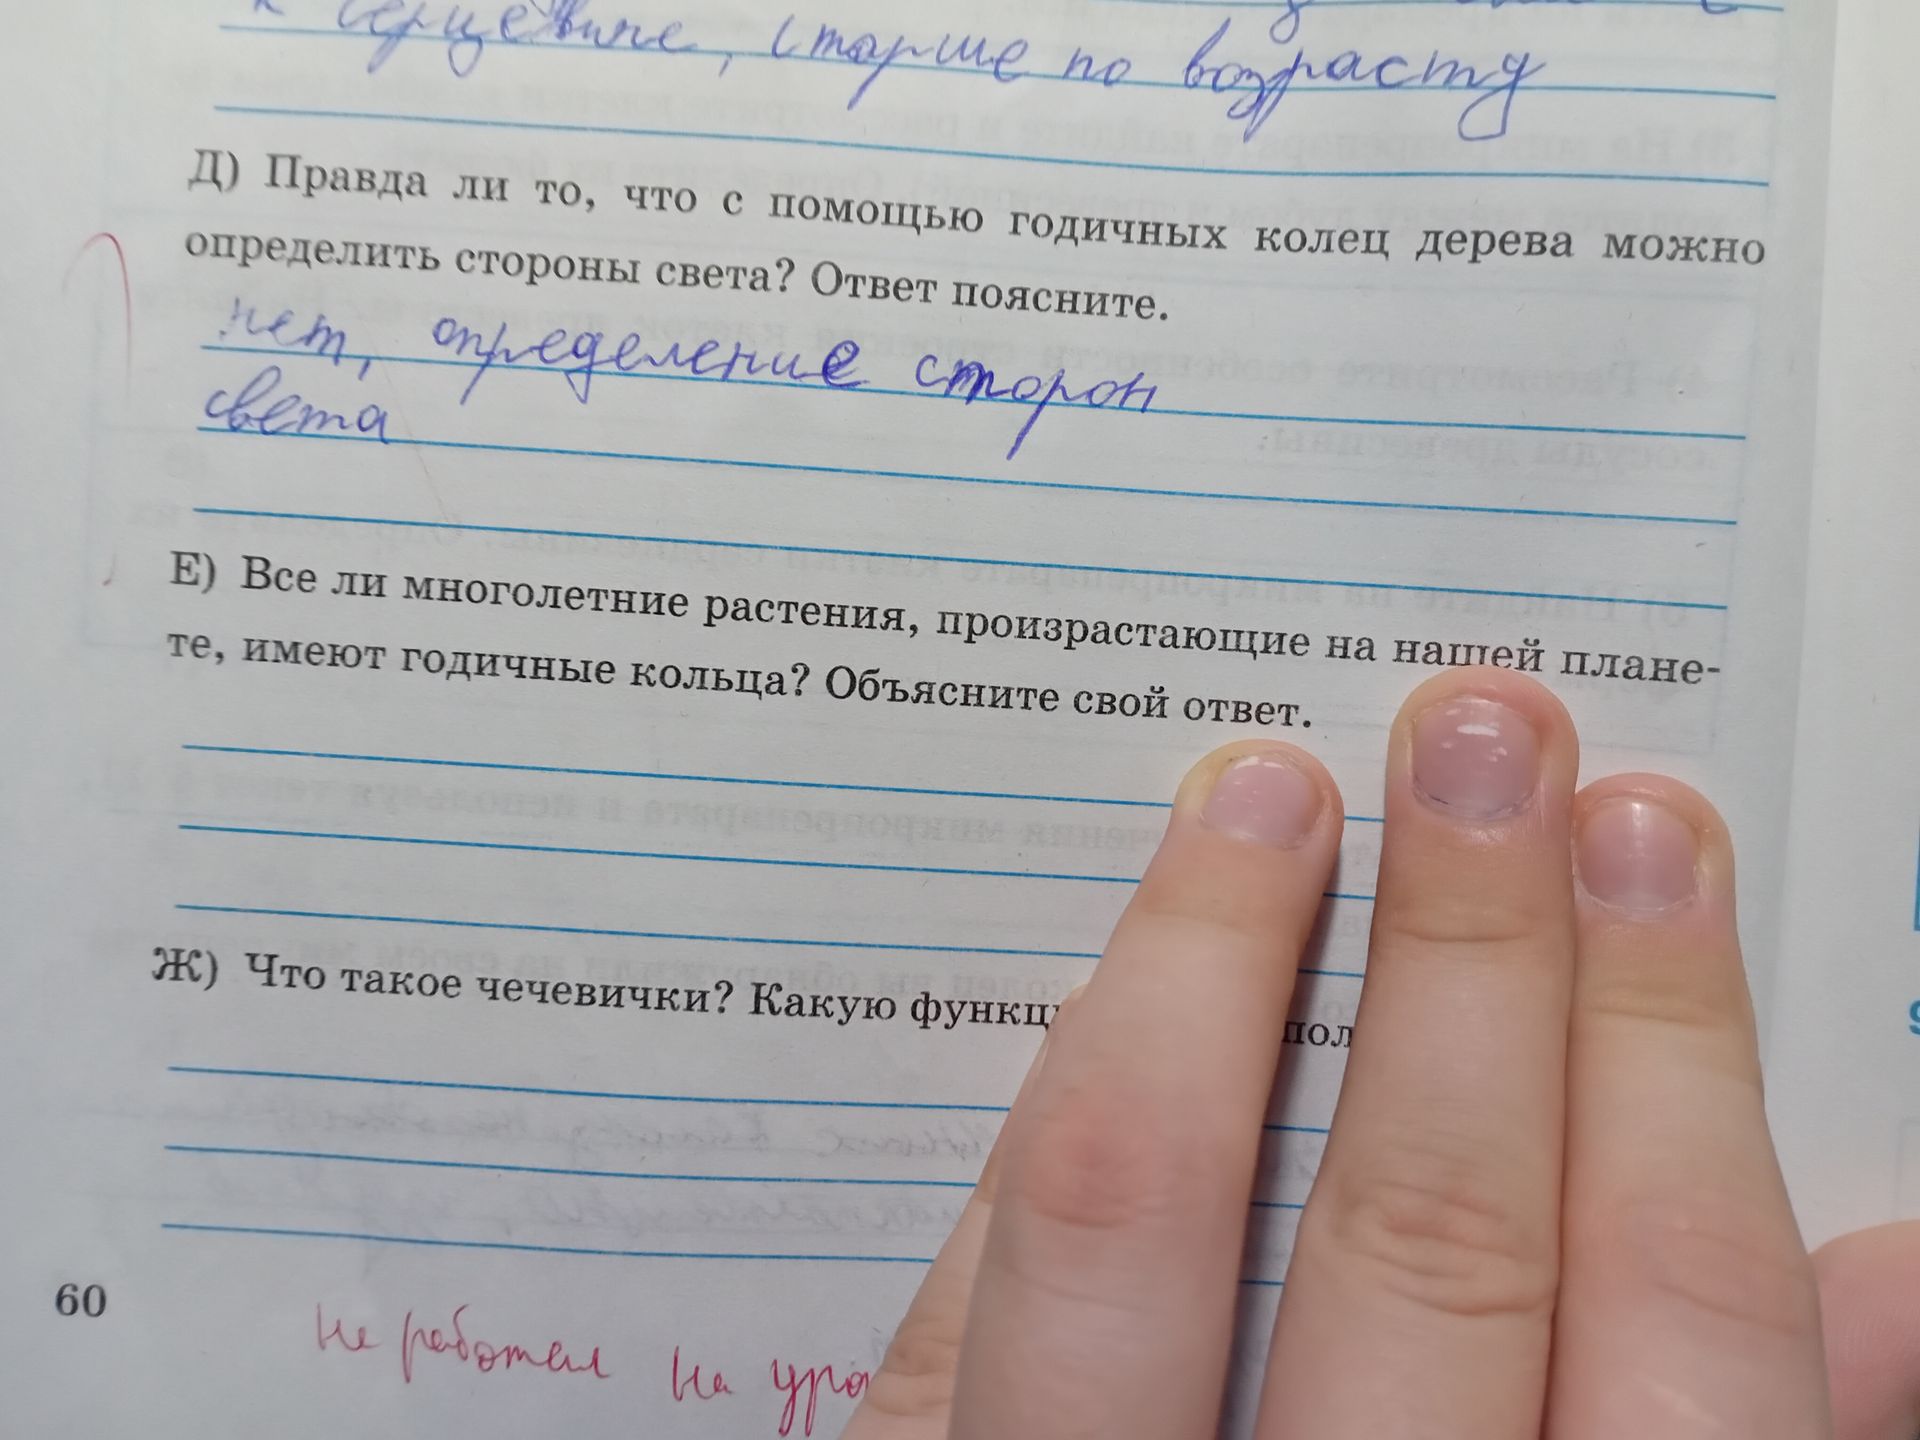 к сердцевине, старше по возрасту
Д) Правда ли то, что с помощью годичных колец дерева можно
определить стороны света? Ответ поясните.
нет, определение сторон
света
Е) Все ли многолетние растения, произрастающие на нашей плане-
те, имеют годичные кольца? Объясните свой ответ.
Ж) Что такое чечевички? Какую функц пол
60
не работал на уро